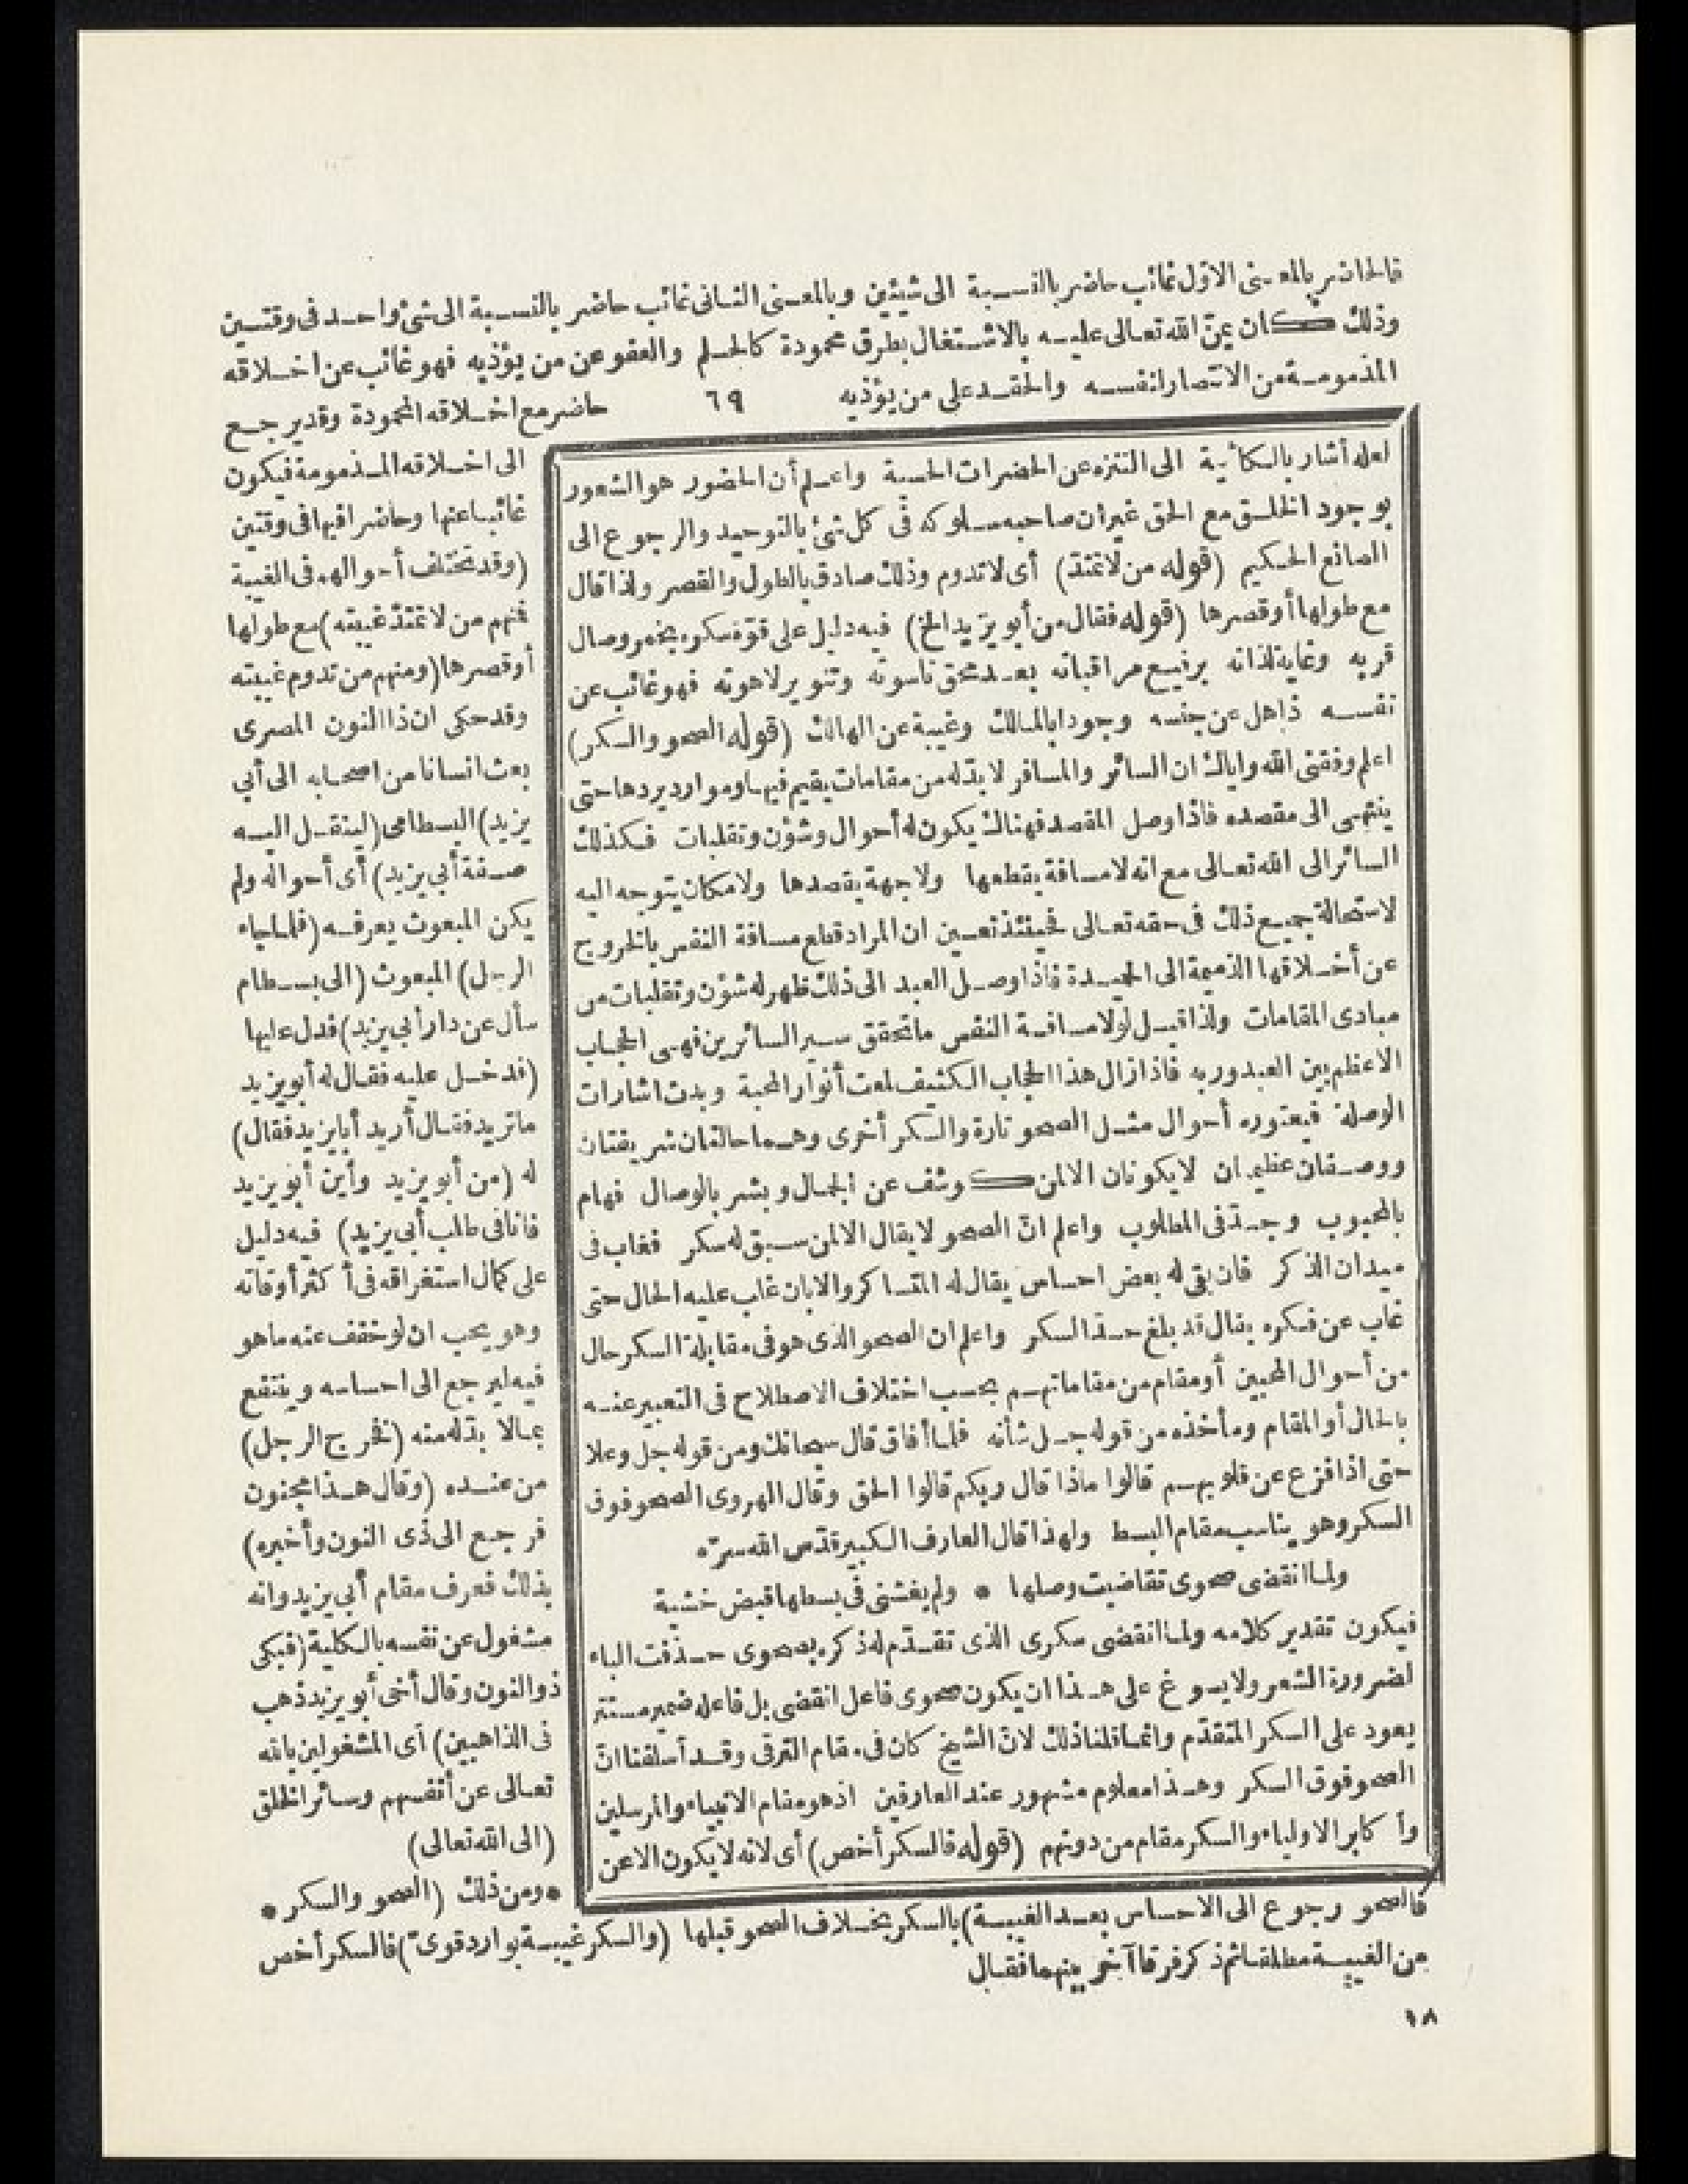 فالحاضر بالمعنى الاوّل غائب حاضر بالنسبة الى شيئين وبالمعنى الثانى غائب حاضر بالنسبة الى شئ واحد فى وقتين
وذلك كان يمنّ الله تعالى عليه بالاشتغال بطرق محمودة كالحلم والعفو عن من يؤذيه فهو غائب عن اخلاقه
المذمومة من الانتصار لنفسه والحقد على من يؤذيه
٦٩
حاضر مع اخلاقه المحمودة وقد يرجع
الى اخلاقه المذمومة فيكون
غائبا عنها وحاضرا فيها فى وقتين
(وقد تختلف أحوالهم فى الغيبة
فمنهم من لا تمتدّ غيبته) مع طولها
أو قصرها (ومنهم من تدوم غيبته
وقد حكى ان ذا النون المصرى
بعث انسانا من اصحابه الى أبى
يزيد) البسطامى (لينقل اليه
صفة أبى يزيد) أى أحواله ولم
يكن المبعوث يعرفه (فلما جاء
الرجل) المبعوث (الى بسطام
سأل عن دار أبى يزيد) فدل عليها
(فدخل عليه فقال له أبو يزيد
ما تريد فقال أريد أبا يزيد فقال)
له (من أبو يزيد وأين أبو يزيد
فانا فى طلب أبى يزيد) فيه دليل
على كمال استغراقه فى أكثر أوقاته
وهو يحب ان لو خفف عنه ما هو
فيه ليرجع الى احساسه وينتفع
بمالا بدّله منه (فخرج الرجل)
من عنده (وقال هذا مجنون
فرجع الى ذى النون وأخبره)
بذلك فعرف مقام أبى يزيد وانه
مشغول عن نفسه بالكلية (فبكى
ذو النون وقال أخى أبو يزيد ذهب
فى الذاهبين) أى المشغولين بالله
تعالى عن أنفسهم وسائر الخلق
(الى الله تعالى)
*ومن ذلك (الصحو والسكر *
لعله أشار بالكلية الى التنزه عن الحضرات الحسية واعلم أن الحضور هو الشعور
بوجود الخلق مع الحق غير ان صاحبه سلوكه فى كل شئ بالتوحيد والرجوع الى
الصانع الحكيم (قوله من لا تمتدّ) أى لا تدوم وذلك صادق بالطول والقصر ولذا قال
مع طولها أو قصرها (قوله فقال من أبو يزيد الخ) فيه دليل على قوّة سكره بخمر وصال
قربه وغاية لذاته برفيع مراقباته بعد محق ناسوته وتنوير لاهوته فهو غائب عن
نفسه ذاهل عن جنسه وجودا بالمالك وغيبة عن الهالك (قوله الصحو والسكر)
اعلم وفقنى الله واياك ان السائر والمسافر لا بدّله من مقامات يقيم فيها وموارد يردها حتى
ينتهى الى مقصده فاذا وصل المقصد فهناك يكون له أحوال وشؤن وتقلبات فكذلك
السائر الى الله تعالى مع انه لا مسافة يقطعها ولا جهة يقصدها ولا مكان يتوجه اليه
لاستحالة جميع ذلك فى حقه تعالى فحينئذ تعين ان المراد قطع مسافة النفس بالخروج
عن أخلاقها الذميمة الى الحميدة فاذا وصل العبد الى ذلك ظهر له شؤن وتقلبات من
مبادى المقامات ولذا قيل لولا مسافة النفس ما تحقق سير السائرين فهى الحجاب
الاعظم بين العبد وربه فاذا زال هذا الحجاب الكثيف لمعت أنوار المحبة وبدت اشارات
الوصلة فيعتوره أحوال مثل الصحو تارة والسكر أخرى وهما حالتان شريفتان
ووصفان عظيمان لا يكونان الا لمن كوشف عن الجمال وبشر بالوصال فهام
بالمحبوب وجدّ فى المطلوب واعلم انّ الصحو لا يقال الا لمن سبق له سكر فغاب فى
ميدان الذكر فان بقى له بعض احساس يقال له المتساكر والا بان غاب عليه الحال حتى
غاب عن فكره يقال قد بلغ حدّ السكر واعلم ان الصحو الذى هو فى مقابلة السكر حال
من أحوال المحبين أو مقام من مقاماتهم بحسب اختلاف الاصطلاح فى التعبير عنه
بالحال أو المقام ومأخذه من قوله جل شأنه فلما أفاق قال سبحانك ومن قوله جل وعلا
حتى اذا فزع عن قلوبهم قالوا ماذا قال ربكم قالوا الحق وقال الهروى الصحو فوق
السكر وهو يناسب مقام البسط ولهذا قال العارف الكبير قدّس الله سرّه
ولما انقضى صحوى تقاضيت وصلها * ولم يغشنى فى بسطها قبض خشية
فيكون تقدير كلامه ولما انقضى سكرى الذى تقدّم له ذكر بصحوى حذفت الباء
لضرورة الشعر ولا يسوغ على هذا ان يكون صحوى فاعل انقضى بل فاعله ضمير مستتر
يعود على السكر المتقدّم وانما قلنا ذلك لانّ الشيخ كان فى مقام الترقى وقد أسلفنا انّ
الصحو فوق السكر وهذا معلوم مشهور عند العارفين اذ هو مقام الانبياء والمرسلين
وأكابر الاولياء والسكر مقام من دونهم (قوله فالسكر أخص) أى لانه لا يكون الا عن
فالصحو رجوع الى الاحساس بعد الغيبة) بالسكر بخلاف الصحو قبلها (والسكر غيبة بوارد قوىّ) فالسكر أخص
من الغيبة مطلقا ثم ذكر فرقا آخر بينهما فقال
١٨